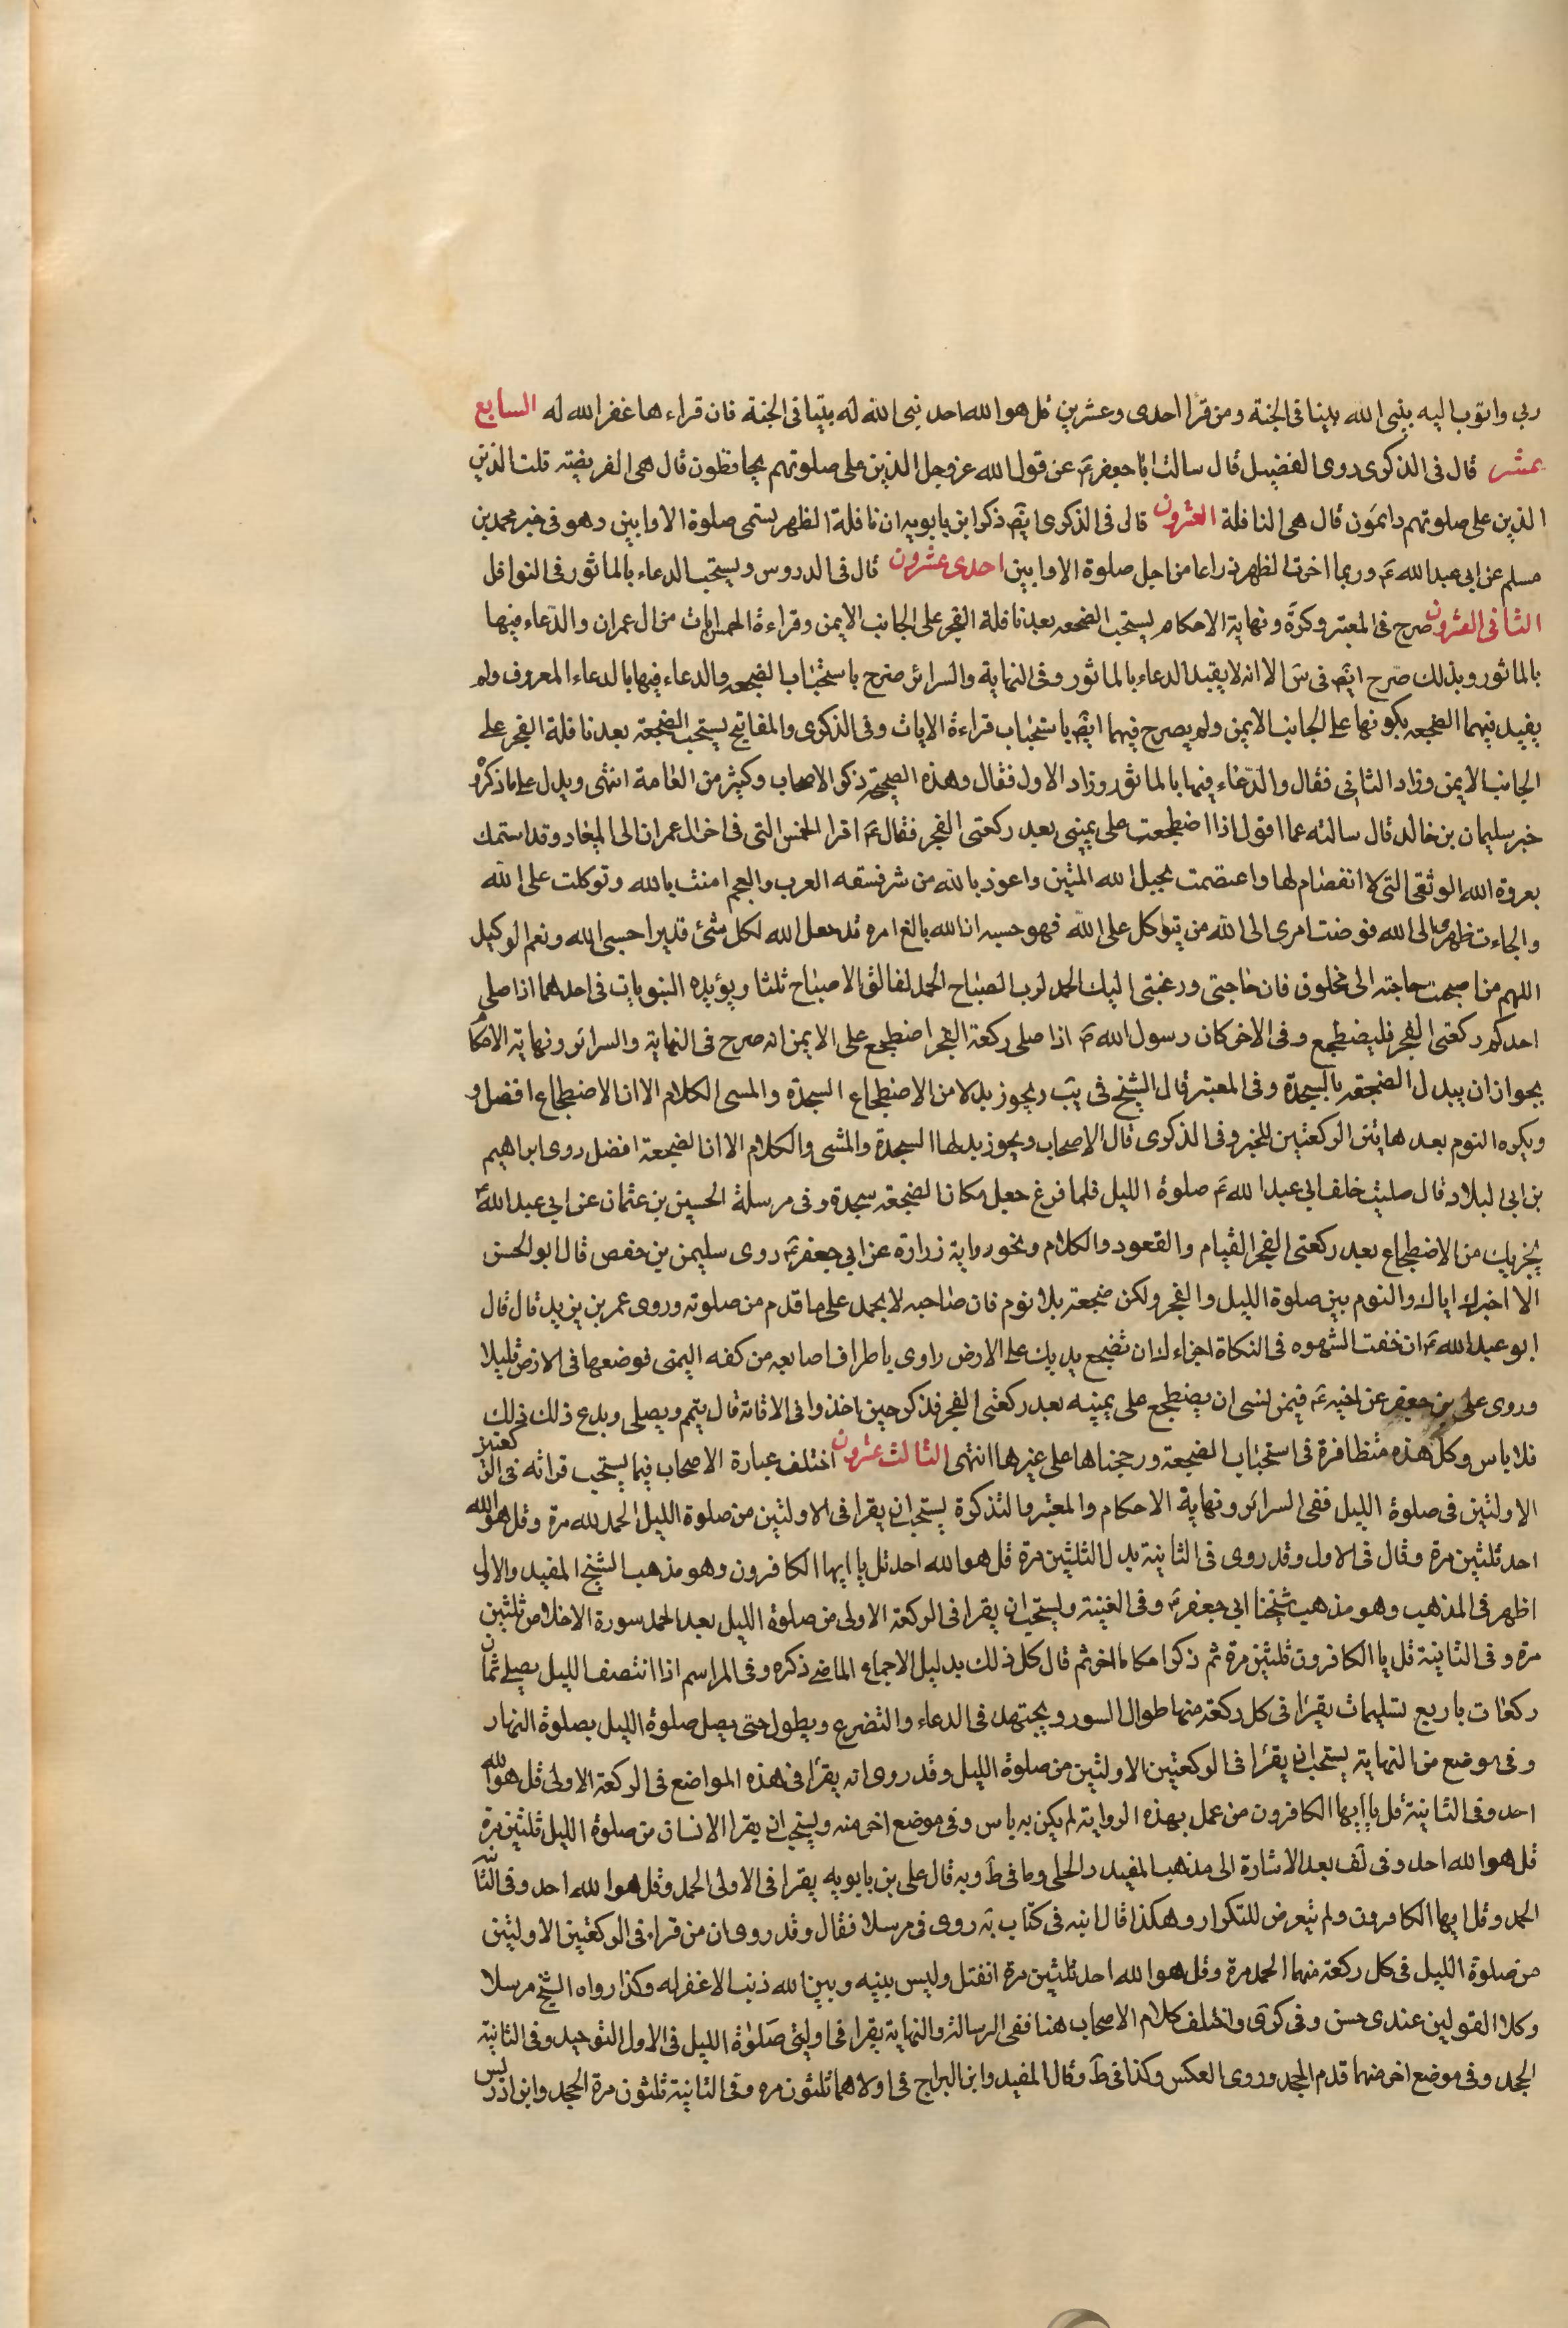 ربي واتوب اليه بني الله بيتا في الجنة ومن قرا احدى وعشرين قل هو الله احد بنى الله له بيتا في الجنة فان قراءها غفر الله له السابع
عشر قال في الذكرى روى الفضيل قال سالت ابا جعفر ع عن قول الله عز وجل الذين على صلوتهم يحافظون قال هي الفريضته قلت الذين
الذين على صلوتهم دايمون قال هي النافلة العشرون قال في الذكرى ايض ذكر ابن بابويه ان نافلة الظهر يستمى صلوة الاوابين وهو في خبر محمد بن
مسلم عن ابي عبد الله ع وربما اخرت الظهر ذراعا من اجل صلوة الاوابين احدى عشرون قال في الدروس ويستحب الدعاء بالماثور في النوافل
الثاني العشرون صرح في المعتبر وكرة ونهاية الاحكام يستحب الضجعه بعد نافلة الفجر على الجانب الايمن وقراءة الخمس ايات من ال عمران والدعاء فيها
بالماثور وبذلك صرح ايض في س الا انه لا يقيد الدعاء بالماثور وفي النهاية والسرائر صرح باستحباب الضجعه والدعاء فيها بالدعاء المعروف ولم
يقيد فيهما الضجعه بكونها على الجانب الايمن ولم يصرح فيهما ايض باستحباب قراءة الايات وفي الذكرى والمفاتيح يستحب الضجعة بعد نافلة الفجر على
الجانب الايمن وزاد الثاني فقال والدعاء فيها بالماثور وزاد الاول فقال وهذه الضجعة ذكر الاصحاب وكثير من العامة انتهى ويدل على ما ذكر
خبر سليمان بن خالد قال سالته عما اقول اذا اضطجعت على يميني بعد ركعتى الفجر فقال ع اقرا الخمس التي في اخر ال عمران الى الميعاد وقد استمسك
بعروة الله الوثقى التي لا انفصام لها واعتصمت بحبل الله المتين واعوذ بالله من شر فسقه العرب والعجم امنت بالله وتوكلت على الله
والجاءت ظهرى الى الله فوضت امرى الى الله من يتوكل على الله فهو حسبه ان الله بالغ امره قد جعل الله لكل شئ قديرا حسبى الله ونعم الوكيل
اللهم من اصبحت حاجته الى مخلوق فان حاجتي ورغبتي اليك الحمد لرب الصباح الحمد لفالق الاصباح ثلثا ويؤيده النبويات في احدهما اذا صلى
احدكم ركعتى الفجر فليضطجع وفي الاخر كان رسول الله ص اذا صلى ركعة الفجر اضطجع على الايمن انه صرح في النهاية والسرائر ونهاية الاحكا
بجواز ان يبدل الضجعة بالسجدة وفي المعتبر قال الشيخ في يب ويجوز بدلا من الاضطجاع السجدة والمسى الكلام الا ان الاضطجاع افضل و
ويكره النوم بعد هايتن الركعتين للخبر وفي الذكرى قال الاصحاب ويجوز بدلها السجدة والمشى والكلام الا ان الضجعة افضل روى ابراهيم
بن ابي البلاد قال صليت خلف ابي عبد الله ع صلوة الليل فلما فرغ جعل مكان الضجعة سجدة وفي مرسلة الحسين بن عثمان عن ابي عبد الله ع
يجزيك من الاضطجاع بعد ركعتى الفجر القيام والقعود والكلام ونحو رواية زرارة عن ابي جعفر ع روى سليمن بن حفص قال ابو الحسن
الا اخبرك اياك والنوم بين صلوة الليل والفجر ولكن ضجعة بلا نوم فان صاحبه لا يحمد على ما قدم من صلوته وروى عمر بن يزيد قال قال
ابو عبد الله ع ان خفت الشهوه في التكاة اجزاءك ان تضجع يديك على الارض راوى باطراف اصابعه من كفه اليمنى فوضعها في الارض قليلا
وروى على بن جعفر عن اخيه ع فيمن لنسى ان يضطجع على يمينه بعد ركعتى الفجر فذكر حين اخذ وا في الاقامة قال يتيم ويصلى ويدع ذلك فلك
فلا باس وكل هذه متظافرة في استحباب الضجعة ورجحناها على غيرها انتهى الثالث عشرون اختلف عبارة الاصحاب فيما يستحب قرائه في الركعتين
الاولتين في صلوة الليل ففي السرائر ونهاية الاحكام والمعتبر والتذكرة يستحب ان يقرا في الاولتين من صلوة الليل الحمد لله مرة وقل هو الله
احد ثلثين مرة وقال في الاول وقد روى في الثانية بدل الثلثين مرة قل هو الله احد قل يا ايها الكافرون وهو مذهب الشيخ المفيد والاولى
اظهر في المذهب وهو مذهب شيخنا ابي جعفر ع وفي الغنية ويستحب ان يقرا في الركعة الاولى من صلوة الليل بعد الحمد سورة الاخلاص ثلثين
مرة وفي الثانية قل يا الكافرون ثلثين مرة ثم ذكر احكاما اخر ثم قال كل ذلك بدليل الاجماع الماضي ذكره وفي المراسم اذا انتصف الليل يصلى ثمان
ركعات باربع تسليمات يقرا في كل ركعة منها طوال السور ويجتهد في الدعاء والتضرع ويطول حتى يصل صلوة الليل بصلوة النهار
وفي موضع من النهاية يستحب ان يقرا في الركعتين الاولتين من صلوة الليل وقد روى انه يقرا في هذه المواضع في الركعة الاولى قل هو الله
احد وفي الثانية قل يا ايها الكافرون من عمل بهذه الرواية لم يكن به باس وفي موضع اخر منه ويستحب ان يقرا الانسان من صلوة الليل ثلثين مرة
قل هو الله احد وفي لف بعد الاشارة الى مذهب المفيد والحلى وما في ط وبه قال على بن بابويه يقرا في الاولى الحمد وقل هو الله احد وفي الثانية
الحمد وقل ايها الكافرون ولم يتعرض للتكرار وهكذا قال ابنه في كتاب يه روى في مرسلا فقال وقد روى ان من قراء في الركعتين الاولتين
من صلوة الليل في كل ركعة منهما الحمد مرة وقل هو الله احد ثلثين مرة انفتل وليس بينه وبين الله ذنب الا غفر له وكذا رواه الشيخ مرسلا
وكلا القولين عندى حسن وفي كرى واختلف كلام الاصحاب هنا ففي الرسالة والنهاية يقرا في اوليتي صلوة الليل في الاول التوحيد وفي الثانية
الجحد وفي موضع اخر منهما قدم الجحد وروى العكس وكذا في ط وقال المفيد وابن البراج في اولاهما ثلثون مره وفي الثانية ثلثون مرة الجحد وابن ادريس